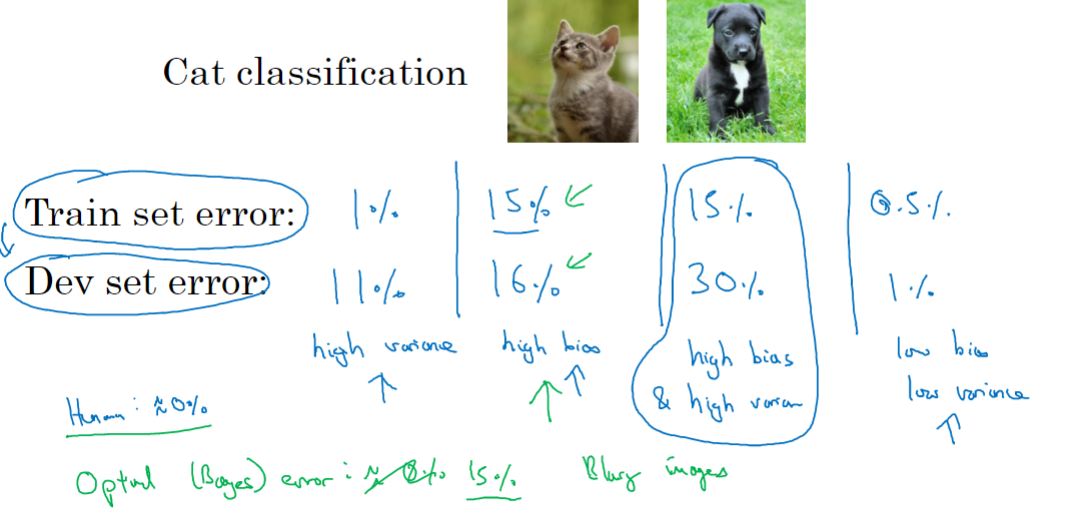 Cat classification
Train set error: 1% 15% 15% 0.5%
Dev set error: 11% 16% 30% 1%
high variance high bias high bias low bias
& high low variance
Human: ≈0%
(Bayes) error: ≈ 0% 15% Blury images